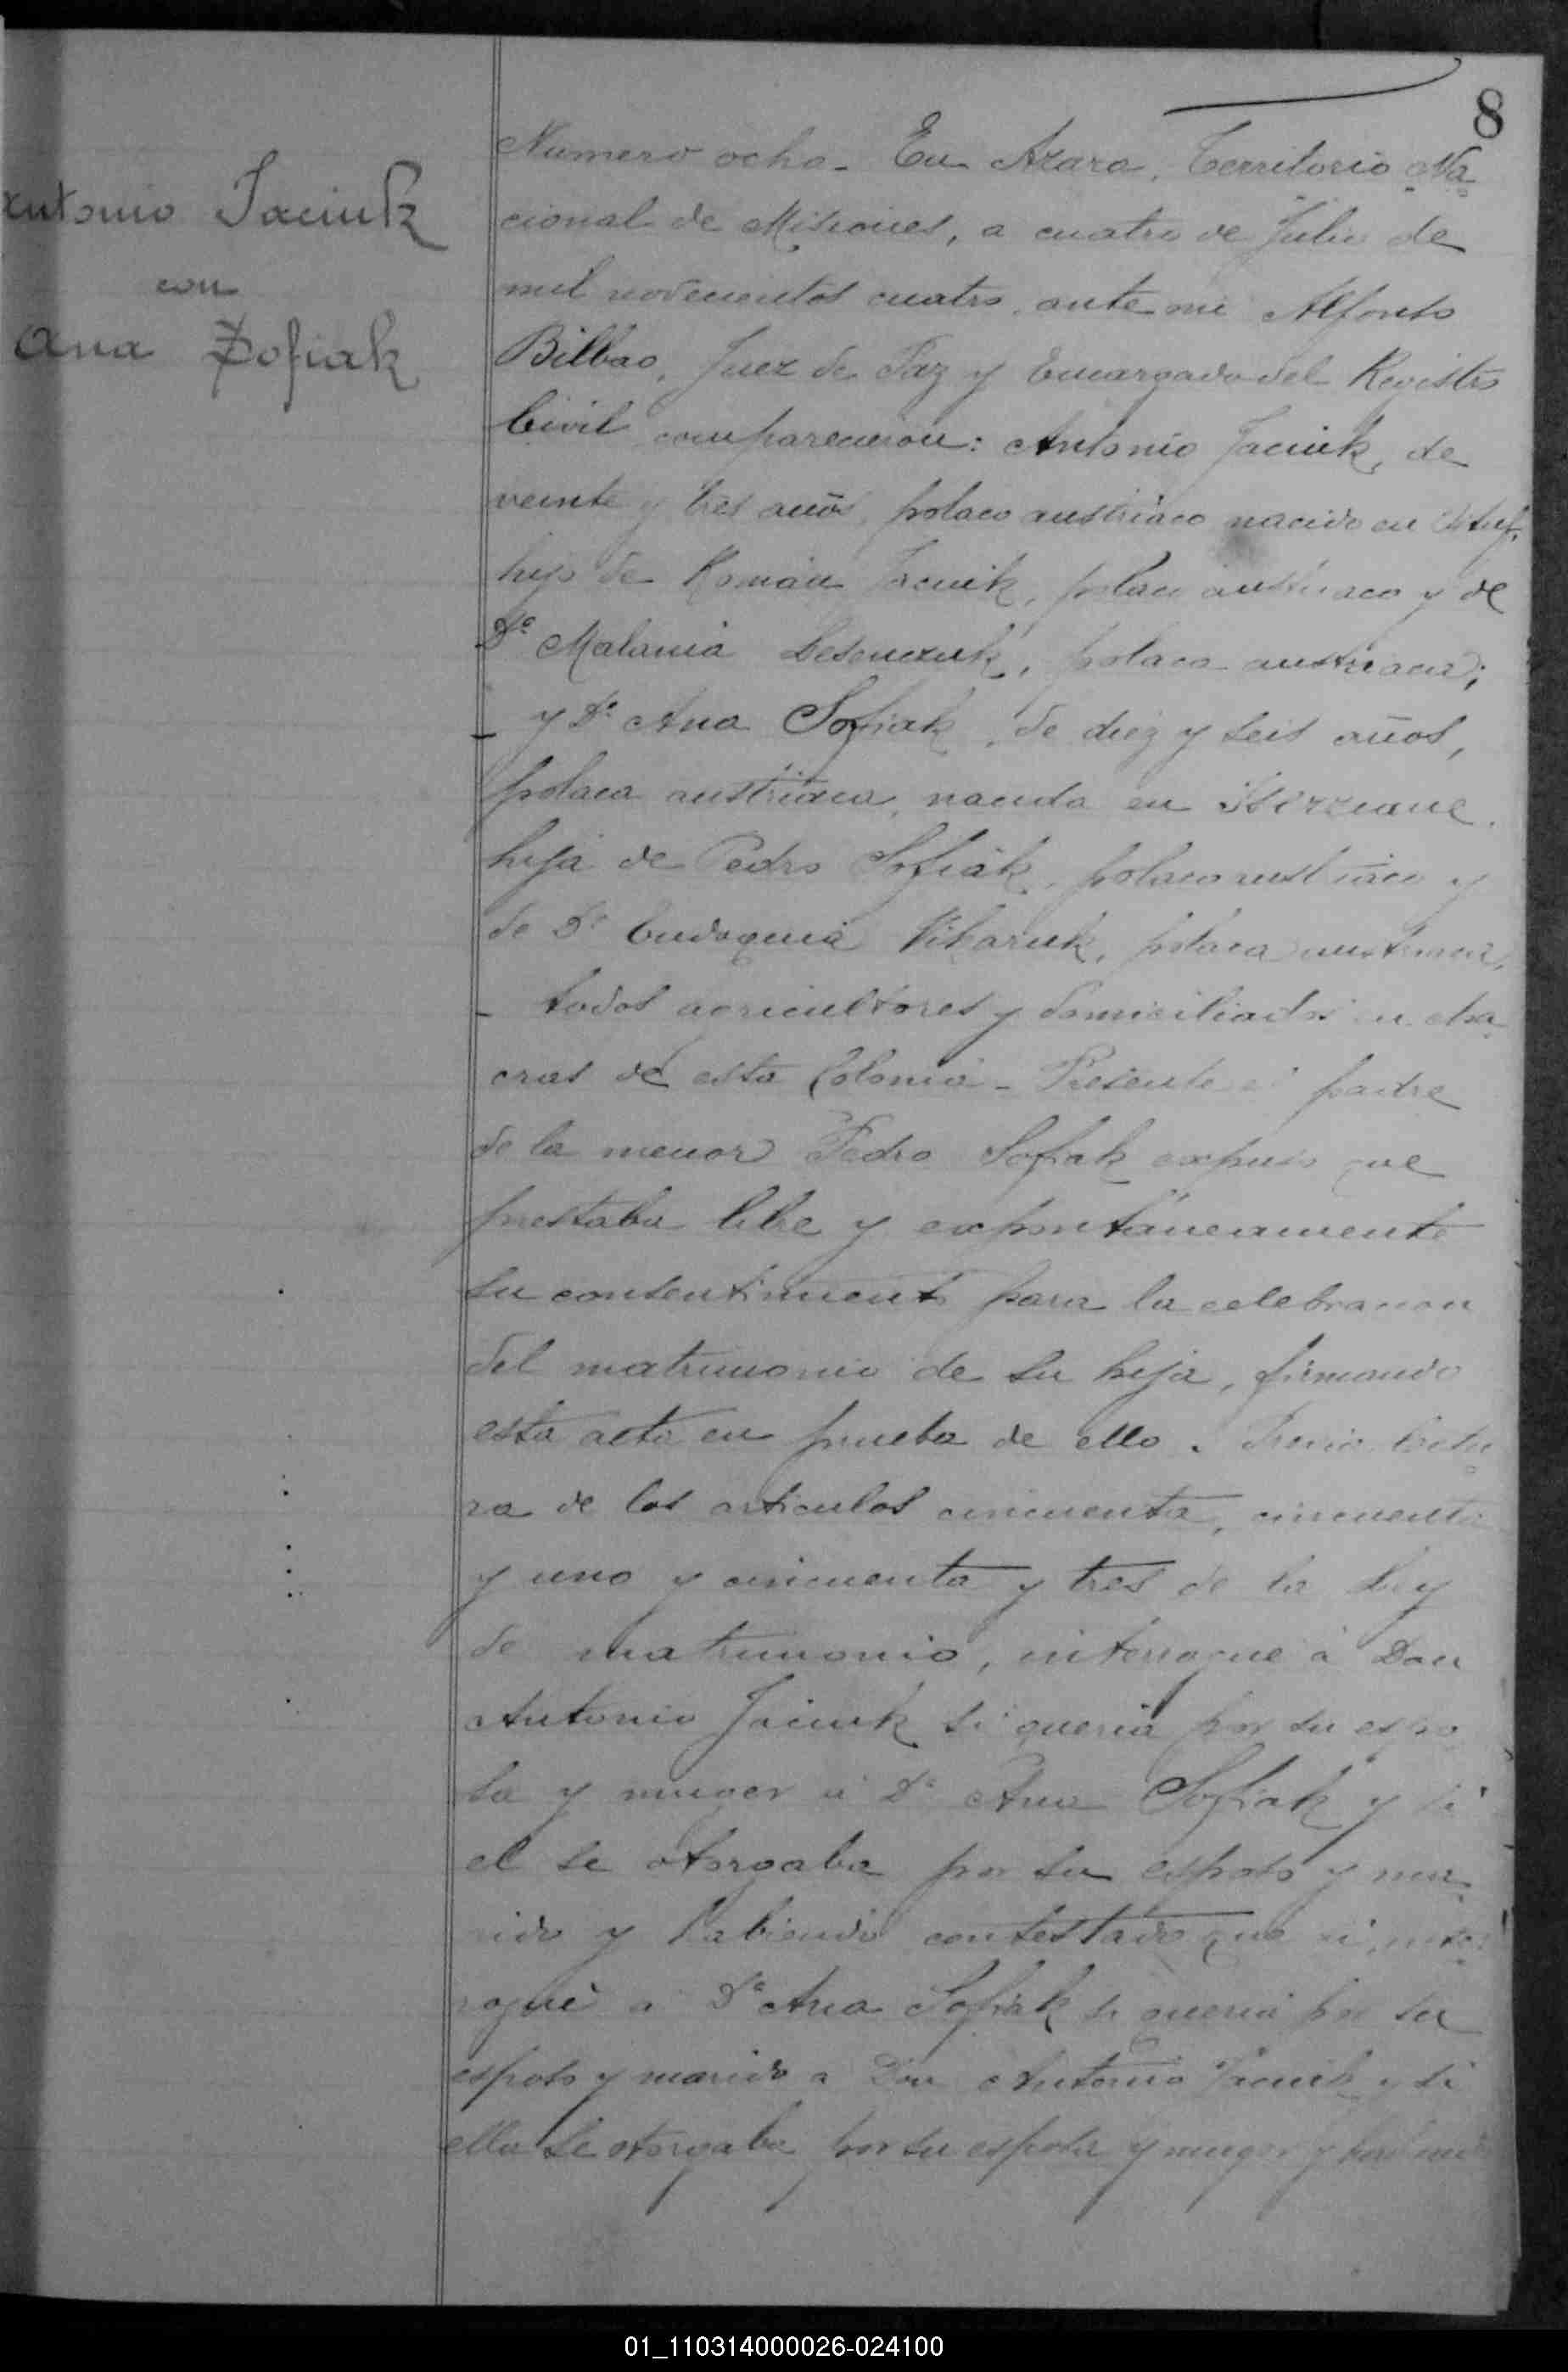 8
Antonio Jaciuk
con
Ana Zofiak
Numero ocho - En Azara, Territorio Na-
cional de Misiones, a cuatro de Julio de
mil novecientos cuatro, ante mi Alfonso
Bilbao, Juez de Paz y Encargado del Registro
Civil comparecieron: Antonio Jaciuk, de
veinte y tres años, polaco austriaco nacido en
hijo de Román Jaciuk, polaco austriaco y de
Dª Malania polaca austriaca;
y Dª Ana Sofiak, de diez y seis años,
polaca austriaca, nacida en
hija de Pedro Sofiak, polaco austriaco y
de Dª Eudoquia Vikaruk, polaca austriaca,
- todos agricultores y domiciliados en cha-
cras de esta Colonia - Presente el padre
de la menor Pedro Sofiak expuso que
prestaba libre y expontáneamente
su consentimiento para la celebracion
del matrimonio de su hija, firmando
esta acta en prueba de ello. Previa lectu-
ra de los articulos cincuenta, cincuenta
y uno y cincuenta y tres de la Ley
de matrimonio, interrogué á Don
Antonio Jaciuk si queria por su espo
sa y muger á Dª Ana Sofiak y si
el se otorgaba por su esposo y ma-
rido y habiendo contestado que si, inter-
rogué a Dª Ana Sofiak si queria por su
esposo y marido a Don Antonio Jaciuk y si
ella se otorgaba por su esposa y muger y habiendo
01_110314000026-024100